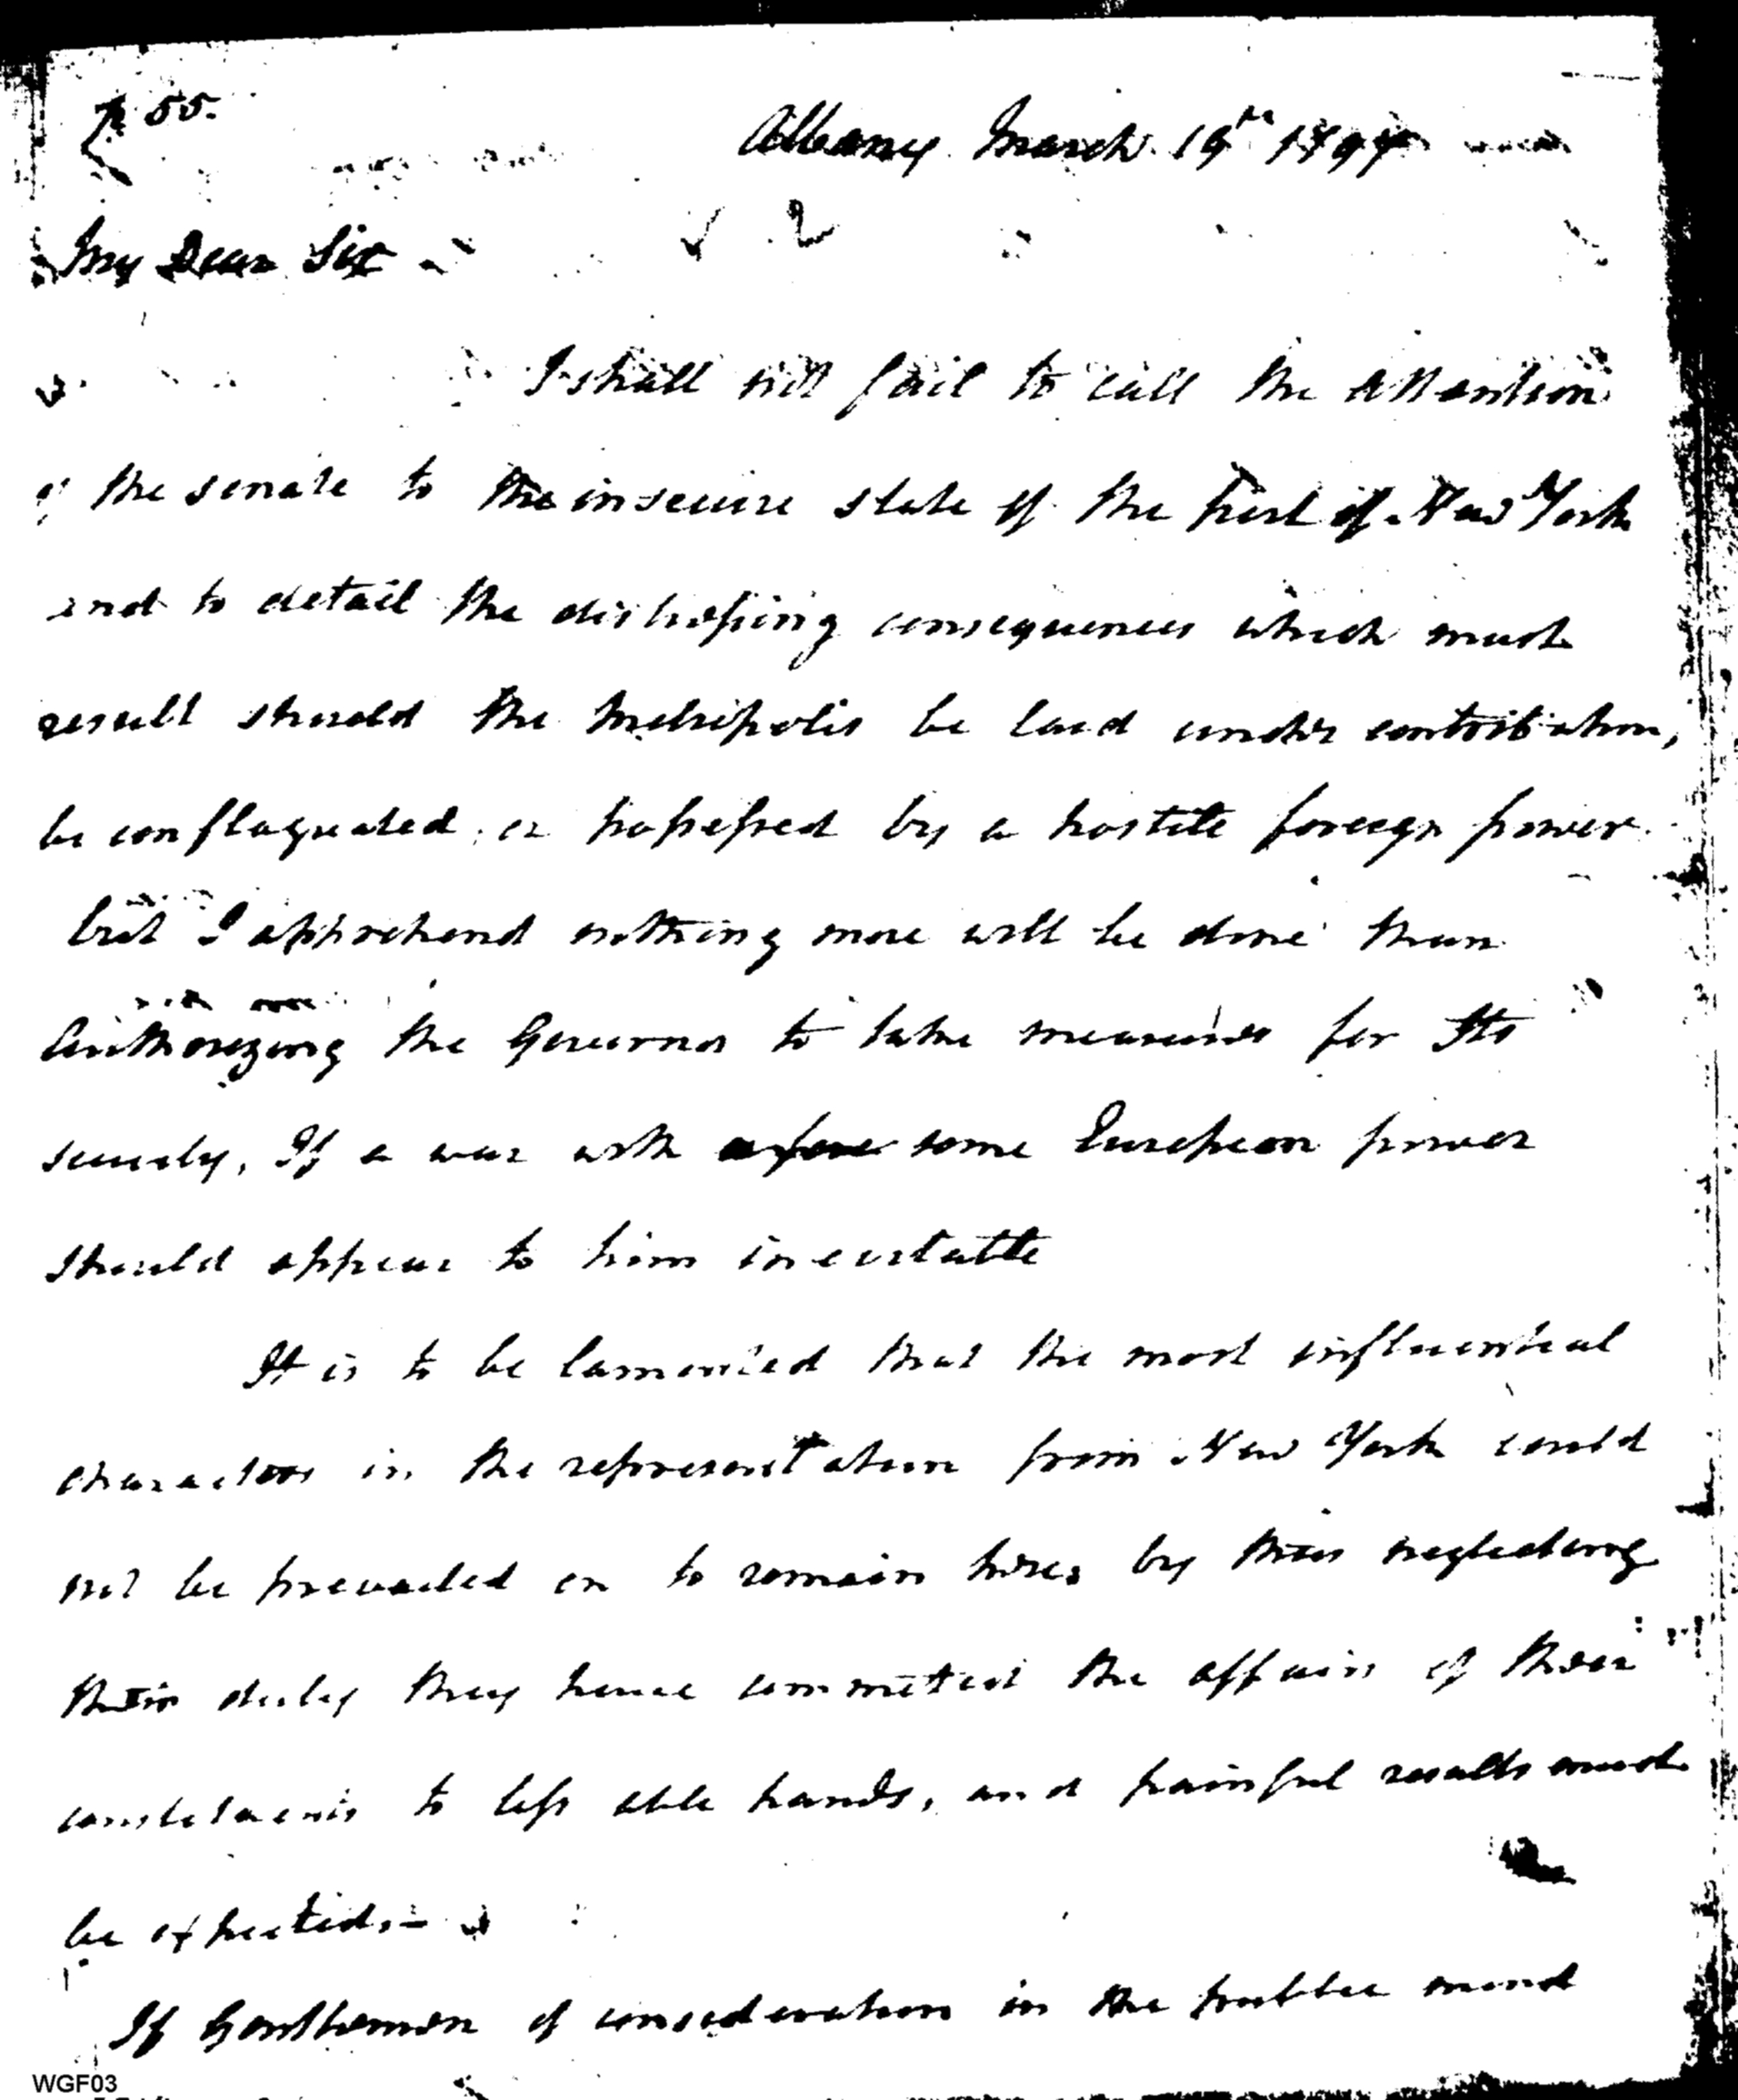 55.
Albany March 19th 1794
2
My Dear Sir
I shall not fail to call the Attention
of the senate to the insecure state of the Port of New York
and to detail the distressing consequences which must
result should the Metropolis be laid under contribution,
be conflagrated, or possessed by a hostile foreign power.
but I apprehend nothing more will be done than
Authorizing the Governor to take measures for Its
security, If a war with some European power
should appear to him inevitable
It is to be lamented that the most influential
characters in the representation from New York could
not be prevailed on to remain here, by thus neglecting
their duty they have committed the affairs of their
constituents to less able hands, and painful results must
be expected. -
If Gentlemen of consideration in the public mind
WGF03